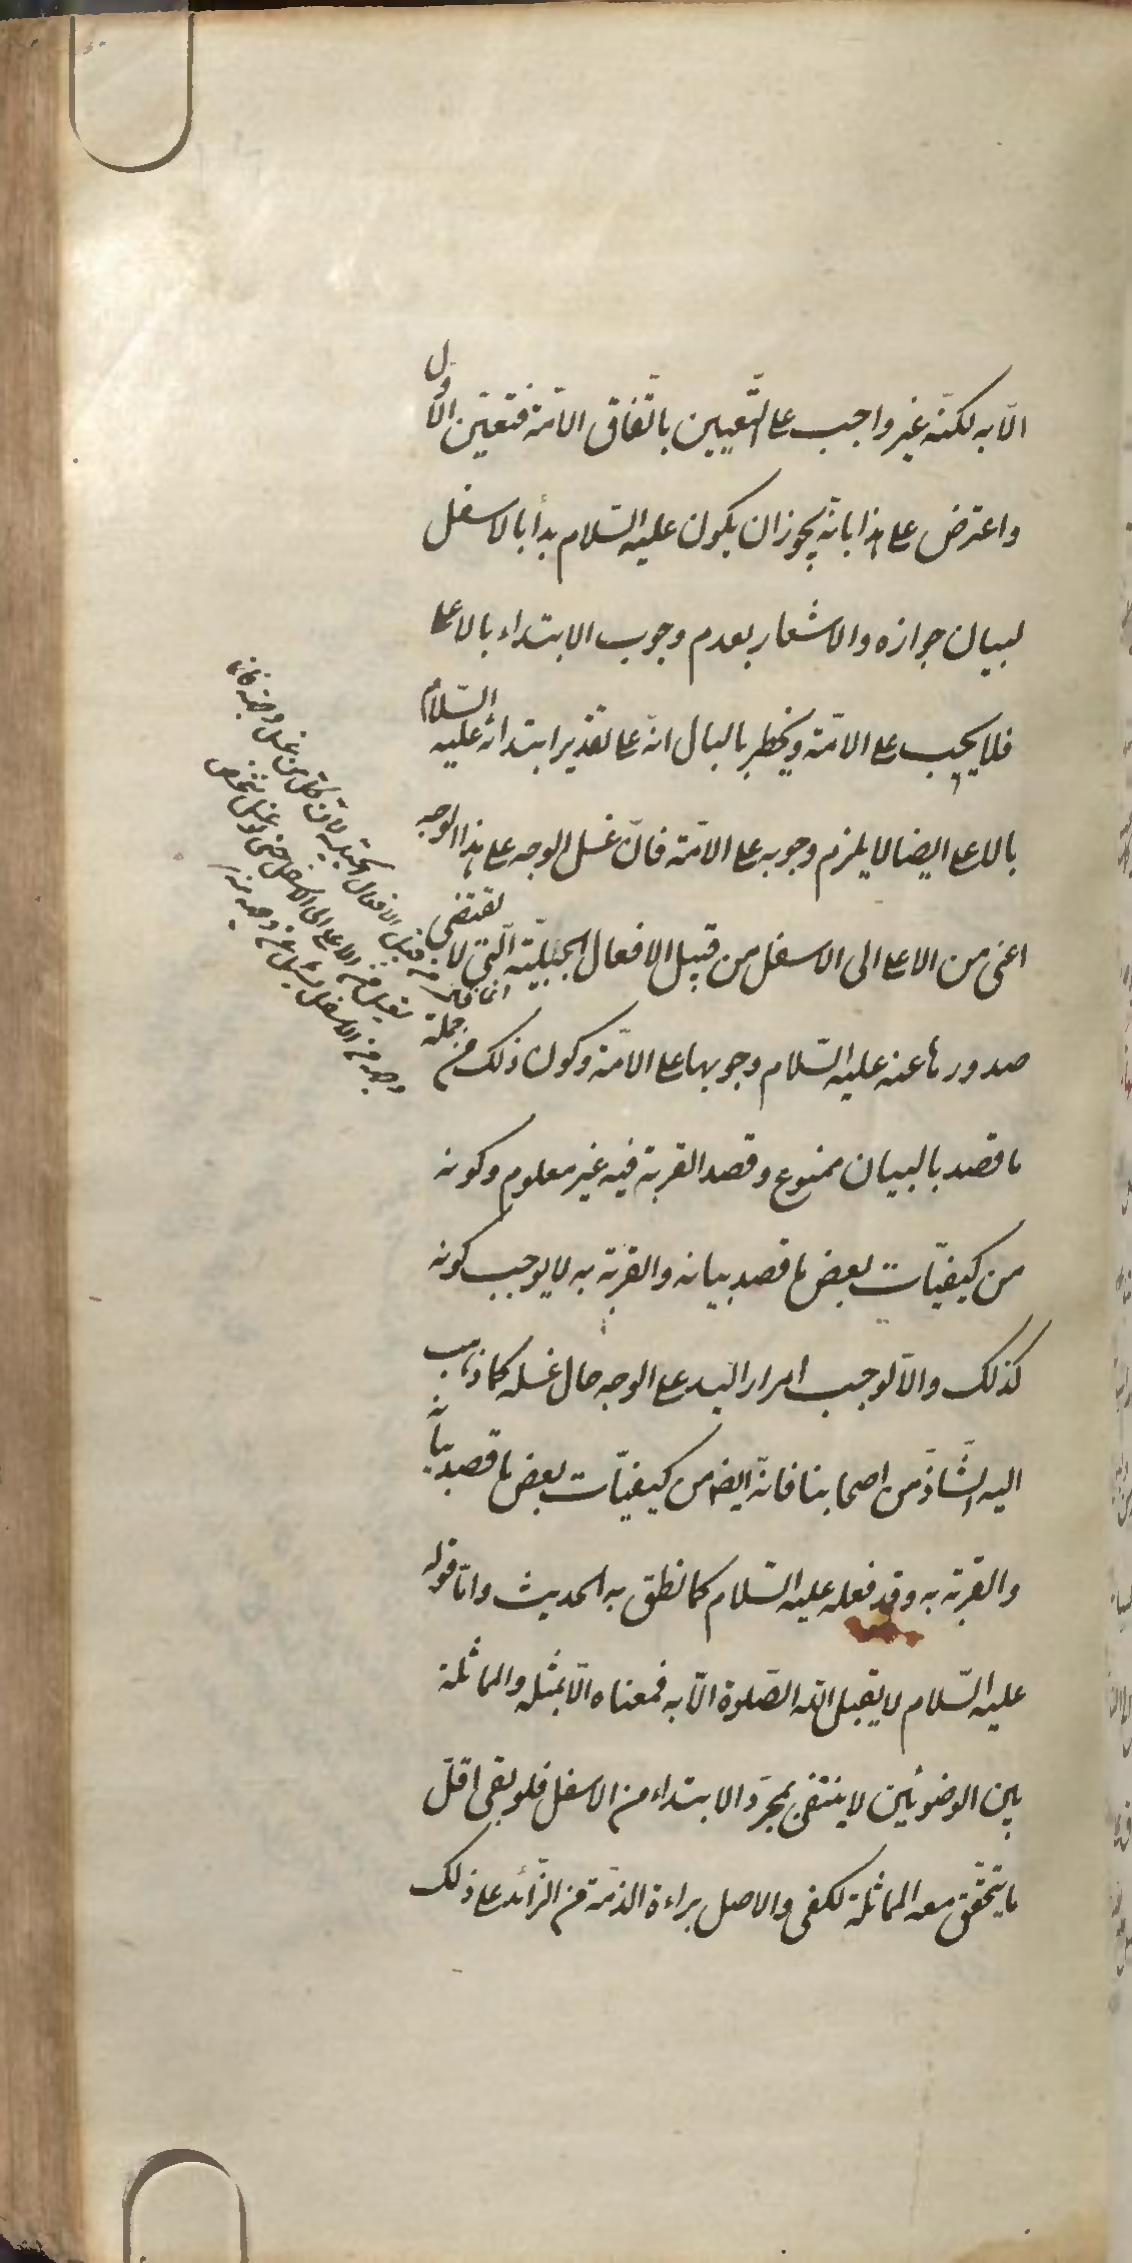 الّا به لكنّه غير واجب على التّعيين باتّفاق الامّة فتعيّن الاوّل
واعترض على هذا بانّه يجوز ان يكون عليه السّلام بدأ بالاسفل
لبيان جوازه والاشعار بعدم وجوب الابتداء بالاعلى
فلا يجب على الامّة ويخطر بالبال انّه على تقدير ابتدائه عليه السّلام
بالاعلى ايضا لا يلزم وجوبه على الامّة فانّ غسل الوجه على هذا الوجه
اعنى من الاعلى الى الاسفل من قبيل الافعال الجبلّيّة الّتي لا يقتضي
صدورها عنه عليه السّلام وجوبها على الامّة وكون ذلك من جملة
ما قصد بالبيان ممنوع وقصد القربة فيه غير معلوم وكونه
من كيفيّات بعض ما قصد بيانه والقربة به لا يوجب كونه
كذلك والّا لوجب امرار اليد على الوجه حال غسله كما ذهب
اليه الشّاذّ من اصحابنا فانّه ايضا من كيفيّات بعض ما قصد بيانه
والقربة به وقد فعله عليه السّلام كما نطق به الحديث وامّا قوله
عليه السّلام لا يقبل الله الصّلوة الّا به فمعناه الّا بمثله والمماثلة
بين الوضوئين لا ينتفى بمجرّد الابتداء من الاسفل فلو بقى اقلّ
ما يتحقّق معه المماثلة لكفى والاصل براءة الذمّة من الزّائد على ذلك
من قبيل الافعال الجبلّية لانّ كلّ من غسل وجهه فانه
يغسل من الاعلى الى الاسفل حتى لو غسل شخص
وجهه من الاسفل